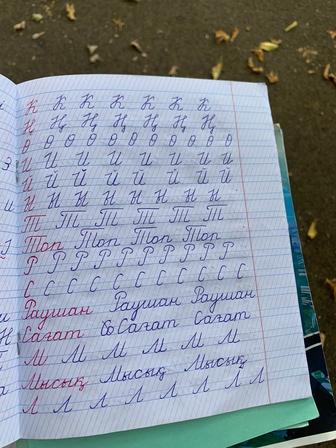 К К К К К К К
Ң Ң Ң Ң Ң Ң Ң
Ө Ө Ө Ө Ө Ө Ө Ө Ө Ө
И И И И И И И И
Й Й Й Й Й Й Й Й
Н Н Н Н Н Н Н Н
Т Т Т Т Т Т
Топ Топ Топ Топ
Р Р Р Р Р Р Р Р Р Р
С С С С С С С С С С
Раушан Раушан Раушан
Сағат Сағат Сағат
М М М М М М М
Мысық Мысық Мысық
Л Л Л Л Л Л Л Л Л